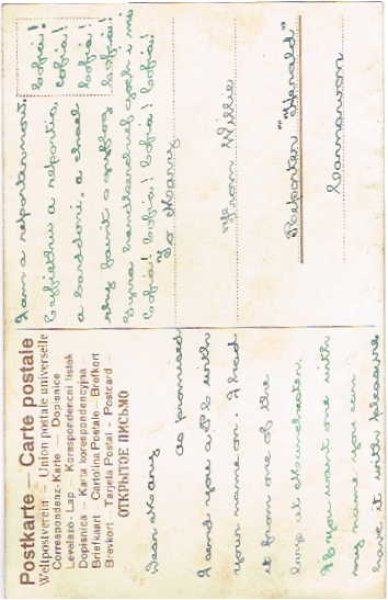 Postkarte – Carte postale
Weltpostverein – Union postale universelle
Correspondenz-Karte – Dopisnice
Levelezö-Lap – Korespondenčni listek
Dopisnica – Karta korespondencyjna
Briefkaart – Cartolina Postale – Brefkort
Brevkort – Tarjeta Postal – Postcard –
ОТКРЫТОЕ ПИСЬМО
Dear Mary
As promised
I send you a P.C. with
your name on. I had
it from one of the
largest
If you want one with
my name you can
have it with pleasure
I am a reporter now.
a reportio,
a barddoni, a chael
rhy faint o
handkerchief goch i mi
Cofia! Cofia! Cofia! Cofia!
Cofia!
Cofia!
Cofia!
Cofia!
"To Mary
"From Willie
Reporter "Herald"
Carnarvon